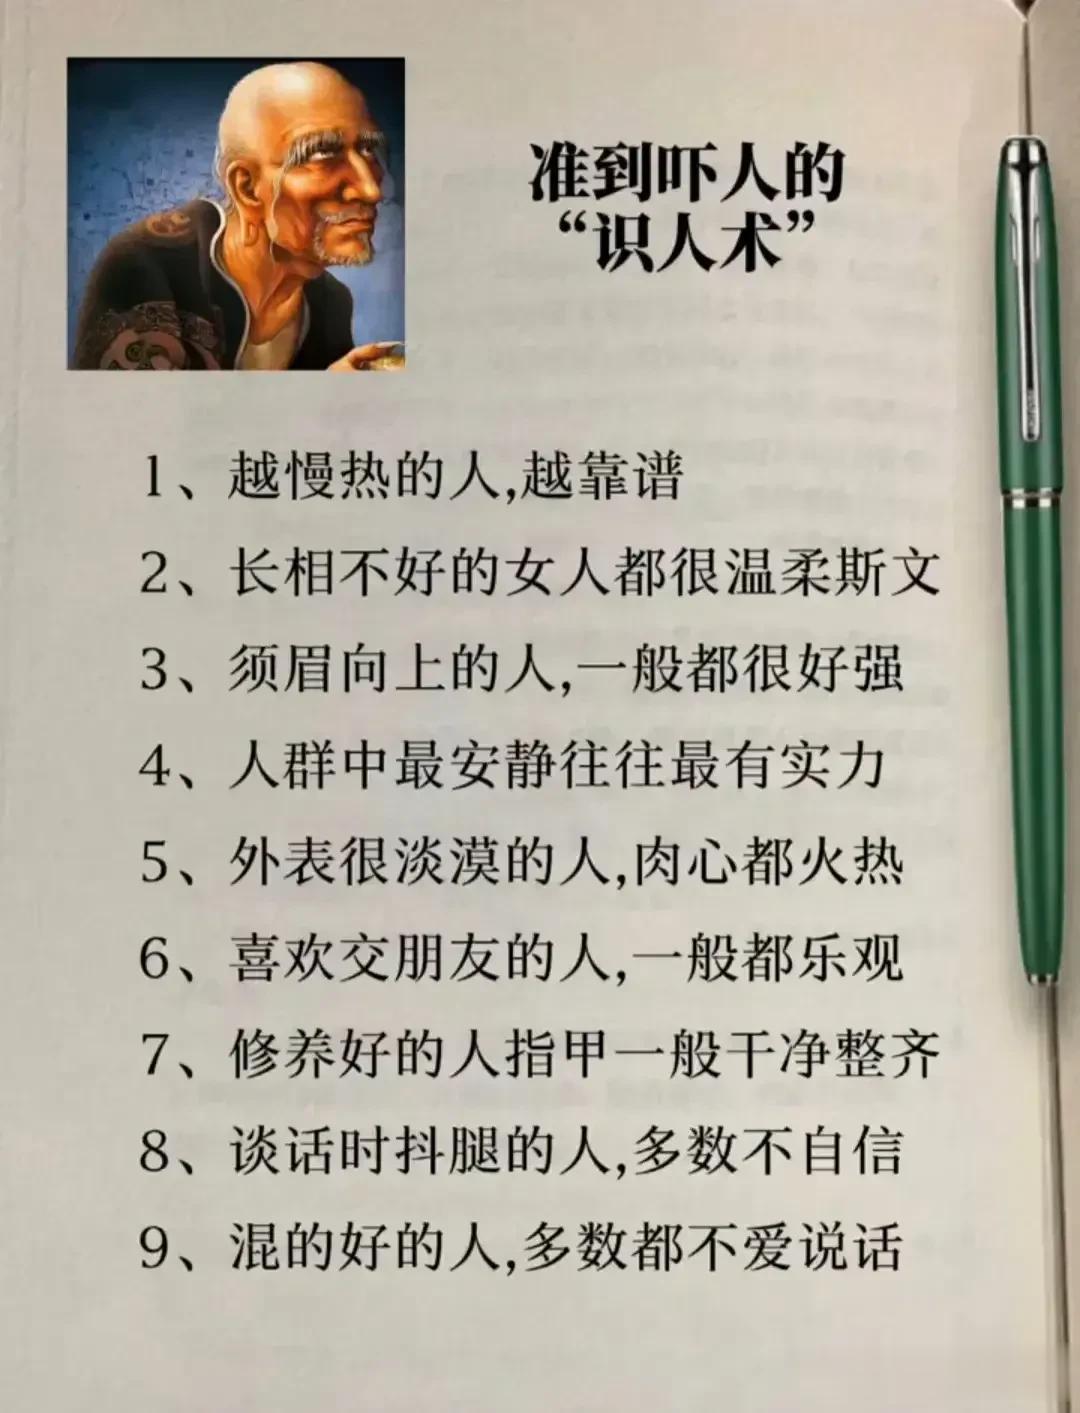 准到吓人的
“识人术”
1、越慢热的人,越靠谱
2、长相不好的女人都很温柔斯文
3、须眉向上的人,一般都很好强
4、人群中最安静往往最有实力
5、外表很淡漠的人,肉心都火热
6、喜欢交朋友的人,一般都乐观
7、修养好的人指甲一般干净整齐
8、谈话时抖腿的人,多数不自信
9、混的好的人,多数都不爱说话